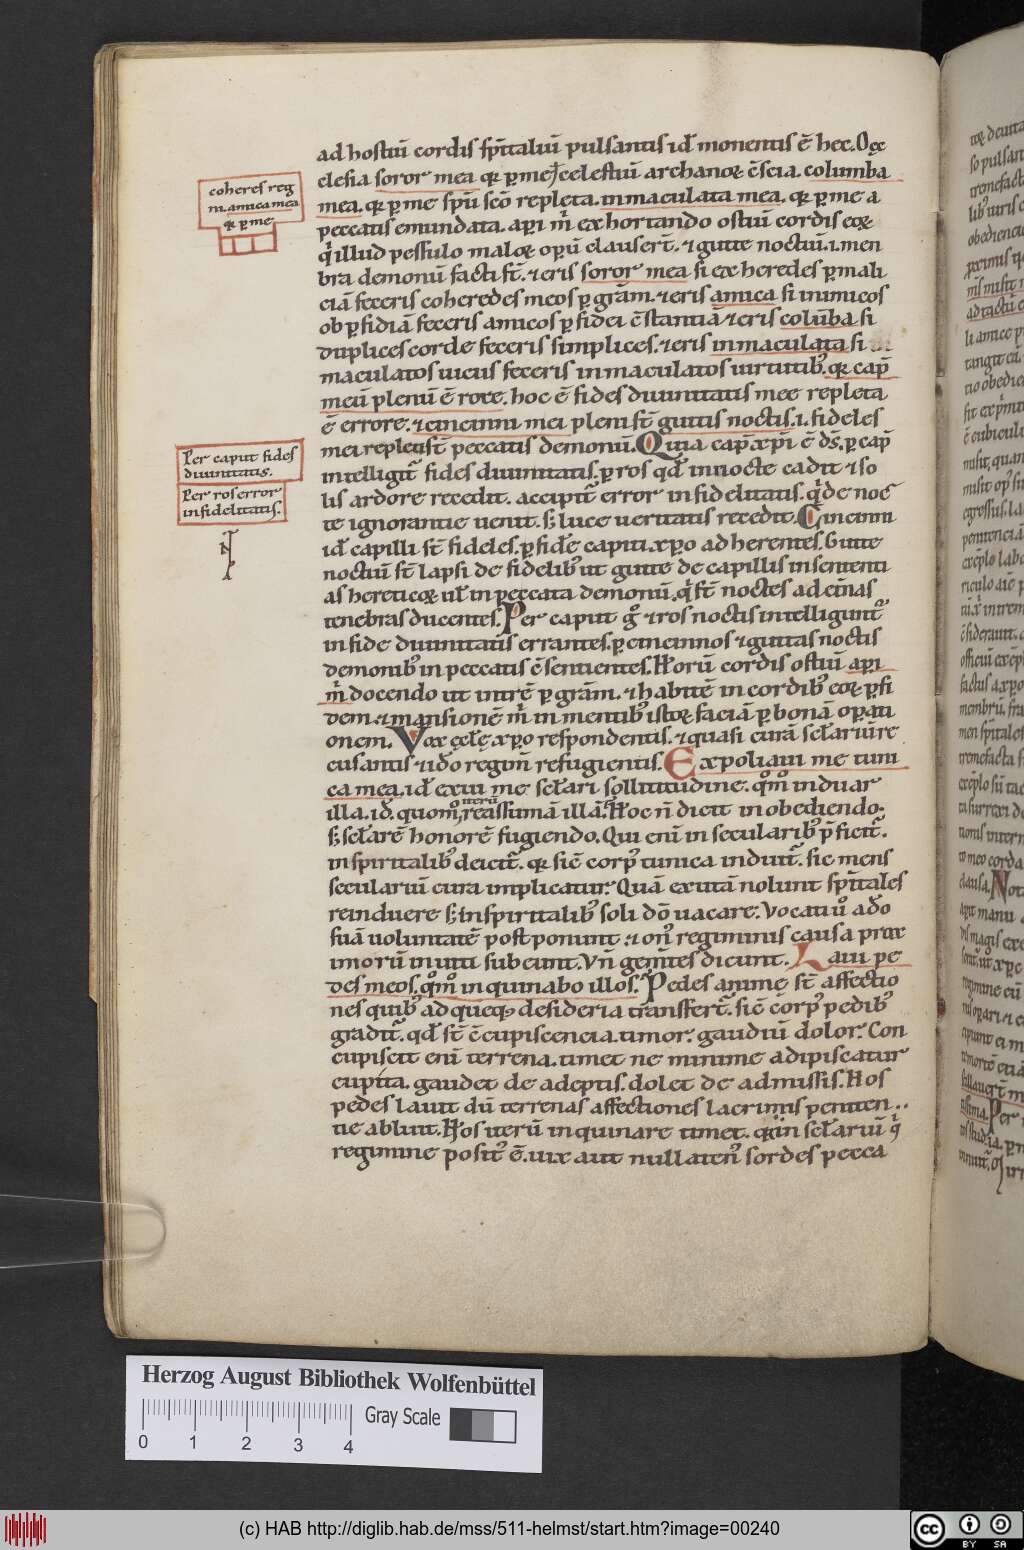 ad hostiū cordis sp̄italiū pulsantis id̄ monentis ē hec. O ec
clesia soror mea q̨ p̱ me celestiū archanoꝝ c̄scia. columba
mea. q̨ p̱ me sp̄u sc̄o repleta. inmaculata mea. q̨ p̱ me a
peccatis emundata. ap̱i m̄ exhortando ostiū cordis eoꝝ
q̄ illud pessulo maloꝝ oꝑū clauser̄t. ⁊ gutte noctiū .i. men
bra demonū facti st̄. ⁊ eris soror mea si exheredes ꝑ mali
ciā feceris coheredes meos ꝑ grām. ⁊ eris amica si inimicos
ob ꝑfidiā feceris amicos ꝑ fidei c̄stantiā ⁊ eris colūba si
duplices corde feceris simplices. ⁊ eris inmaculata si in
maculatos uicus feceris inmaculatos uirtutibꝰ. q̨ cap̄
meū plenū ē rore. hoc ē fides diuinitatis mee repleta
ē errore. ⁊ cincinni mei pleni st̄ guttis noctis .i. fideles
mei repleti st̄ peccatis demonū. Quia cap̄ xp̄i ē d̄s. ꝑ cap̄
intelligit᷑ fides diuinitatis. ꝑ ros qd̄ in nocte cadit ⁊ so
lis ardore recedit. accipit᷑ error infidelitatis. q̄ de noc
te ignorantie uenit. s; luce ueritatis recedit. Cincinni
id̄ capilli st̄ fideles. ꝑ fidē capiti xp̄o adherentes. Gutte
noctiū st̄ lapsi de fidelibꝰ ut gutte de capillis in sententi
as hereticoꝝ ul̄ in peccata demonū. q̄ st̄ noctes ad et̄nas
tenebras ducentes. Per caput gͦ ⁊ ros noctis intelligunt᷑
in fide diuinitatis errantes. ꝑ cincinnos ⁊ guttas noctis
demonibꝰ in peccatis c̄sentientes. Horū cordis ostiū aꝑi
m̄ docendo ut intrē ꝑ grām. ⁊ habitē in cordibꝰ eoꝝ ꝑ fi
dem ⁊ mansionē m̄ in mentibꝰ istoꝝ faciā ꝑ bonā oꝑati
onem. Vox ecl̄ę xp̄o respondentis. ⁊ quasi curā sel̄ariū re
cusantis ⁊ id̄o regim̄ refugientis. Expoliaui me tuni
ca mea. id̄ exui me sel̄ari sollicitudine. qͦmͦ induar
illa. id̄. quomͦ iterū reassumā illā. Hoc n̄ dicit inobediendo.
s; sel̄arē honorē fugiendo. Qui enī in secularibꝰ p̄ficit᷑.
in spiritalibꝰ deicit᷑. q̨ sic̄ corpꝰ tunica induit᷑. sic mens
seculariū cura implicatur. Quā exutā nolunt sp̄itales
reinduere s; in spiritalibꝰ soli dō uacare. Vocati uͦ a dō
suā uoluntatē postponunt. ⁊ onꝰ regiminis causa prox
imorū inuiti subeunt. Vn̄ gem̄tes dicunt. Laui pe
des meos. qͦmͦ inquinabo illos. Pedes anime st̄ affectio
nes quibꝰ ad queqꝫ desideria transfert᷑. sic̄ corpꝰ pedibꝰ
gradit᷑. qd̄ st̄ c̄cupiscencia. timor. gaudiū dolor. Con
cupiscit enī terrena. timet ne minime adipiscatur
cupita. gaudet de adeptis. dolet de admissis. Hos
pedes lauit dū terrenas affectiones lacrimis peniten
tie abluit. Hos iterū inquinare timet. q̨ in sel̄ariū q̄
regimine positꝰ ē. uix aut nullatenꝰ sordes pecca
coheres reg
ni. amica mea
q̨ p̱ me
Per caput fides
diuinitatis.
Per ros error
infidelitatis.
Herzog August Bibliothek Wolfenbüttel
0 1 2 3 4
Gray Scale
(c) HAB http://diglib.hab.de/mss/511-helmst/start.htm?image=00240
cc BY SA